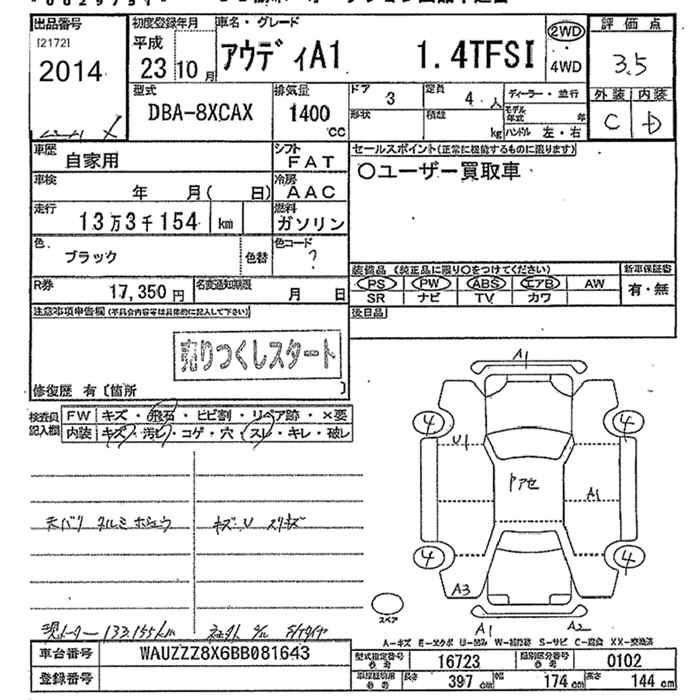 出品番号 初度登録年月 車名・グレード 評価点
[2172]
2014
平成
23 10月
アウディA1 1.4TFSI
2WD
4WD
3.5
型式 排気量 ドア 定員 ディーラー・並行 外装 内装
DBA-8XCAX 1400 CC
3 4 人
形状 積載 kg
モデル年式 年
ハンドル 左・右
C D
車歴 自家用
シフト FAT
セールスポイント(正常に機能するものに限ります)
○ユーザー買取車
車検 年 月( 日)
冷房 AAC
走行 13万3千154 km
燃料 ガソリン
色. ブラック 色替 色コード ?
装備品 (純正品に限り○をつけてください) 新車保証書
PS PW ABS エアB AW 有・無
SR ナビ TV カワ
R券 17,350円 名変通知期限 月 日
後日品
注意事項申告欄(不具合内容等は具体的に記入して下さい)
売りつくしスタート
修復歴 有〔箇所 〕
検査員記入欄
FW キズ・飛石・ヒビ割・リペア跡・×要
内装 キズ・汚レ・コゲ・穴・スレ・キレ・破レ
A1
4 4
U1
トアセ
A1
4 4
A3
スペア
A1 A2
天バリ タルミ ホシュウ キズ U スリキズ
現メーター 133,155km
A-キズ E-エクボ U-凹み W-補修跡 S-サビ C-腐食 XX-交換済
車台番号 WAUZZZ8X6BB081643
型式指定番号 16723 類別区分番号 0102
登録番号
長さ 397 cm 幅 174 cm 高さ 144 cm